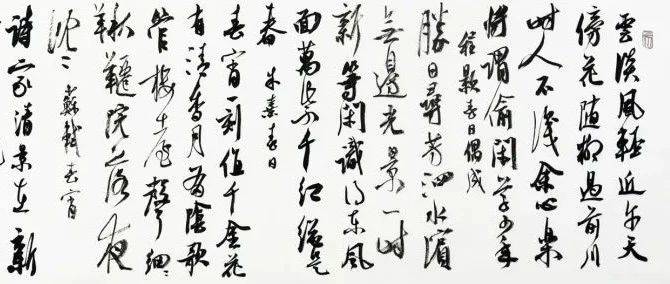 雲淡風輕近午天
傍花随柳過前川
時人不識余心樂
將謂偷閑学少年
程颢春日偶成
勝日尋芳泗水濱
無邊光景一時
新等閑識得東風
面萬紫千紅總是
春 朱熹春日
春宵一刻值千金花
有清香月有陰歌
管樓臺聲細〻
鞦韆院落夜
沈〻 蘇軾春宵
詩家清景在新